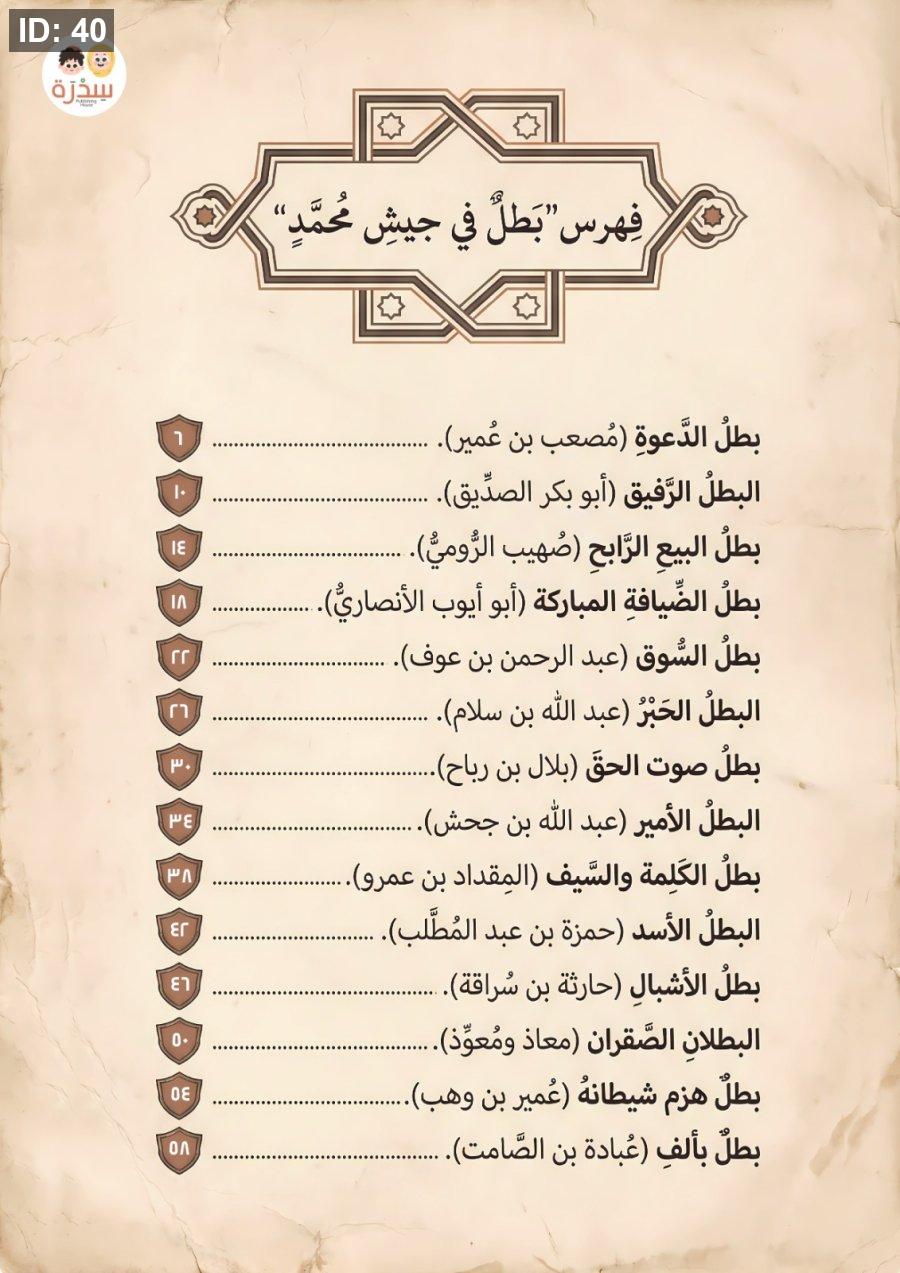 ID: 40
سِدْرَة
Publishing House
فِهرس "بَطلٌ في جيشِ مُحمَّدٍ"
بطلُ الدَّعوةِ (مُصعب بن عُمير). ٦
البطلُ الرَّفيق (أبو بكر الصدِّيق). ١٠
بطلُ البيعِ الرَّابحِ (صُهيب الرُّوميُّ). ١٤
بطلُ الضِّيافةِ المباركة (أبو أيوب الأنصاريُّ). ١٨
بطلُ السُّوق (عبد الرحمن بن عوف). ٢٢
البطلُ الحَبْرُ (عبد الله بن سلام). ٢٦
بطلُ صوت الحقَ (بلال بن رباح). ٣٠
البطلُ الأمير (عبد الله بن جحش). ٣٤
بطلُ الكَلِمة والسَّيف (المِقداد بن عمرو). ٣٨
البطلُ الأسد (حمزة بن عبد المُطَّلب). ٤٢
بطلُ الأشبالِ (حارثة بن سُراقة). ٤٦
البطلانِ الصَّقران (معاذ ومُعوِّذ). ٥٠
بطلٌ هزم شيطانهُ (عُمير بن وهب). ٥٤
بطلٌ بألفِ (عُبادة بن الصَّامت). ٥٨